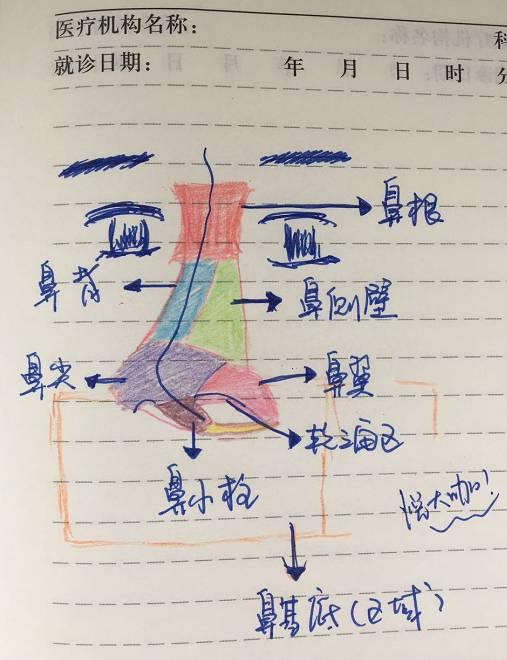 医疗机构名称：
科
就诊日期： 年 月 日 时 分
鼻根
鼻背
鼻侧壁
鼻尖
鼻翼
软三角区
鼻小柱
大咖!
鼻基底（区域）